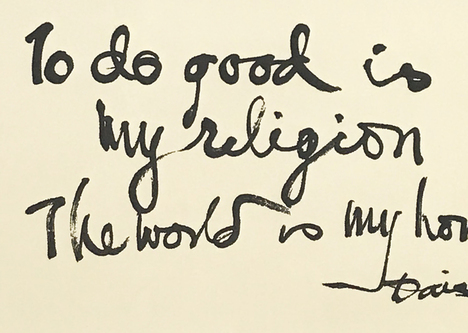 To do good is
my religion
The world is my hom
Dais